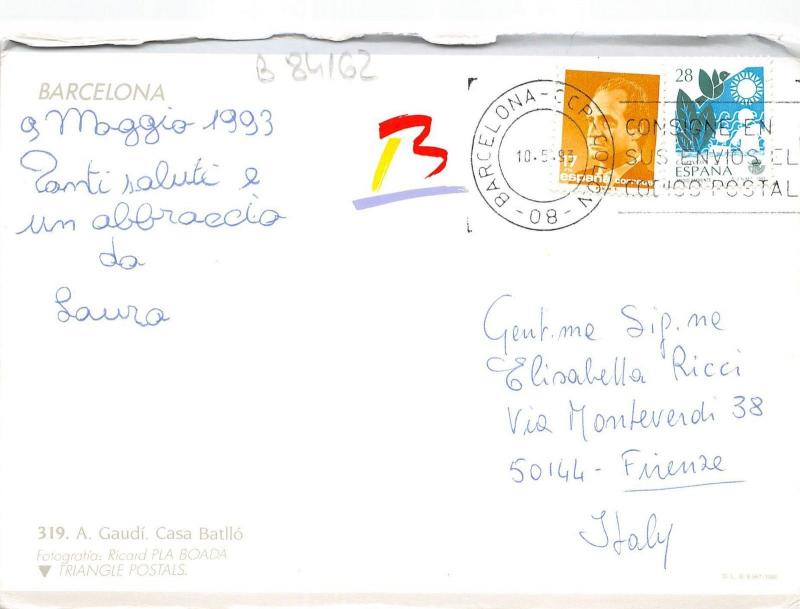 B 84162
BARCELONA
9 Maggio 1993
Tanti saluti e
un abbraccio
da
Laura
BARCELONA-CCP
10.5.93
-08-
CONSIGNE EN
SUS ENVIOS EL
CODIGO POSTAL
17
españa correos
28
ESPAÑA
Gent.me Sig.ne
Elisabella Ricci
Via Monteverdi 38
50144- Firenze
Italy
319. A. Gaudí. Casa Batlló
Fotografia: Ricard PLA BOADA
TRIANGLE POSTALS.